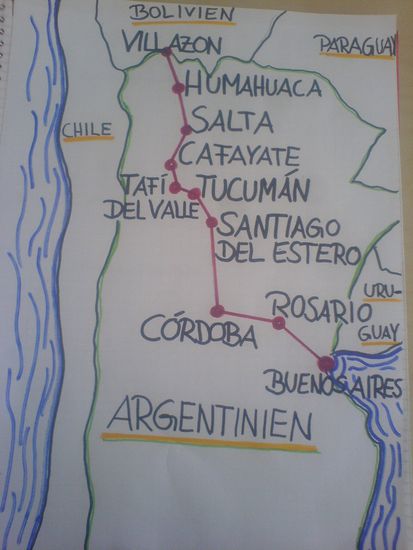 BOLIVIEN
VILLAZON
PARAGUAY
HUMAHUACA
CHILE
SALTA
CAFAYATE
TAFÍ
DEL VALLE
TUCUMÁN
SANTIAGO
DEL ESTERO
URU-
GUAY
ROSARIO
CÓRDOBA
BUENOS AIRES
ARGENTINIEN